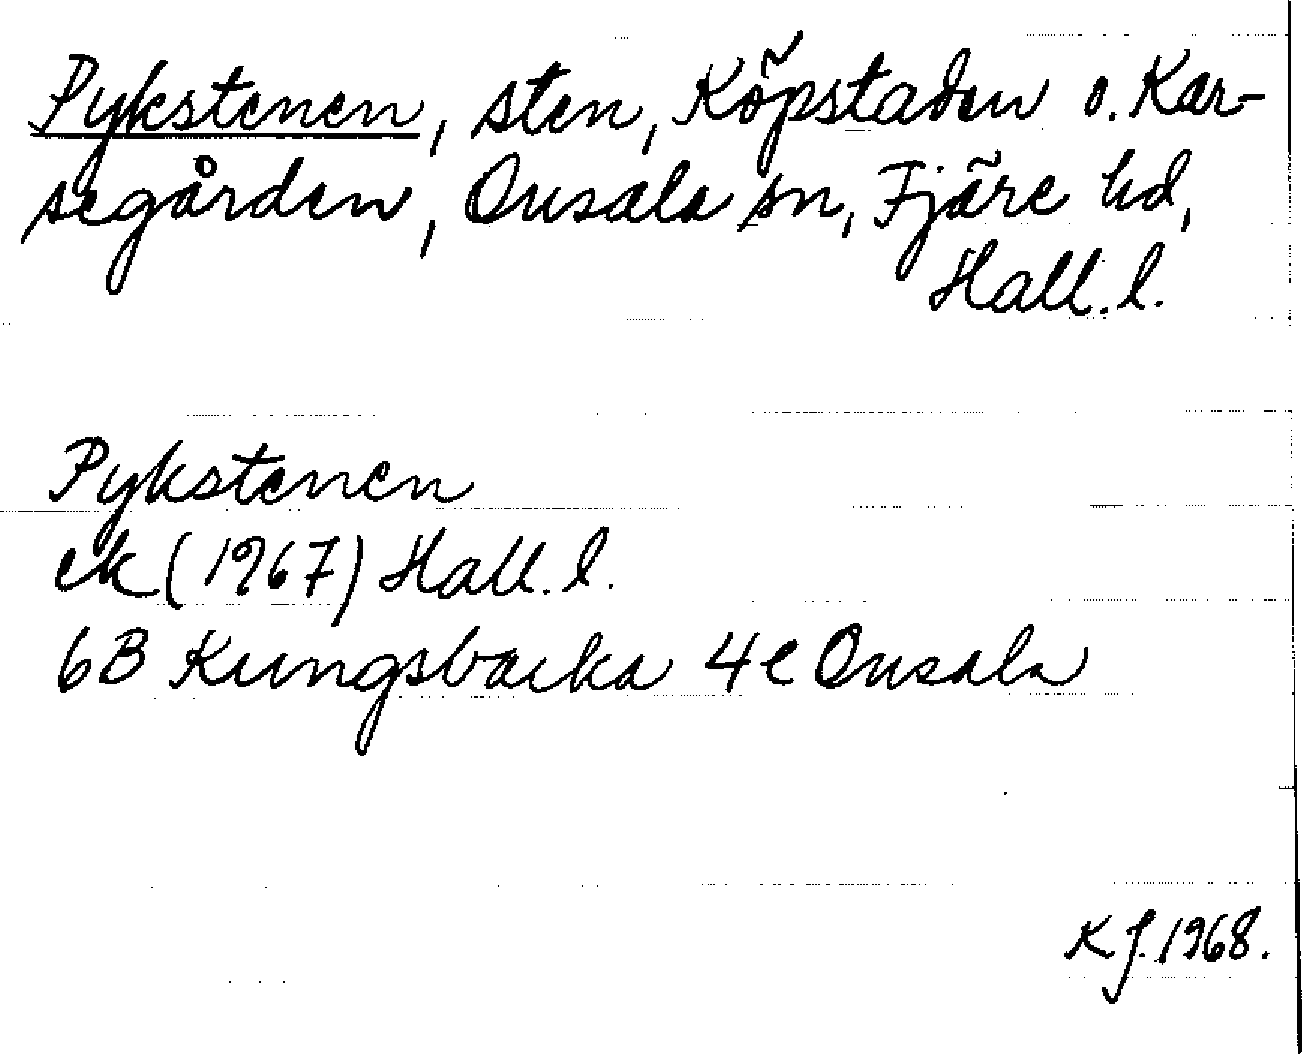 Pykstenen, sten, Köpstaden o. Kar-
segården, Onsala sn, Fjäre hd,
Hall. l.
Pykstenen
ek (1967) Hall. l.
6B Kungsbacka 4e Onsala
K J. 1968.